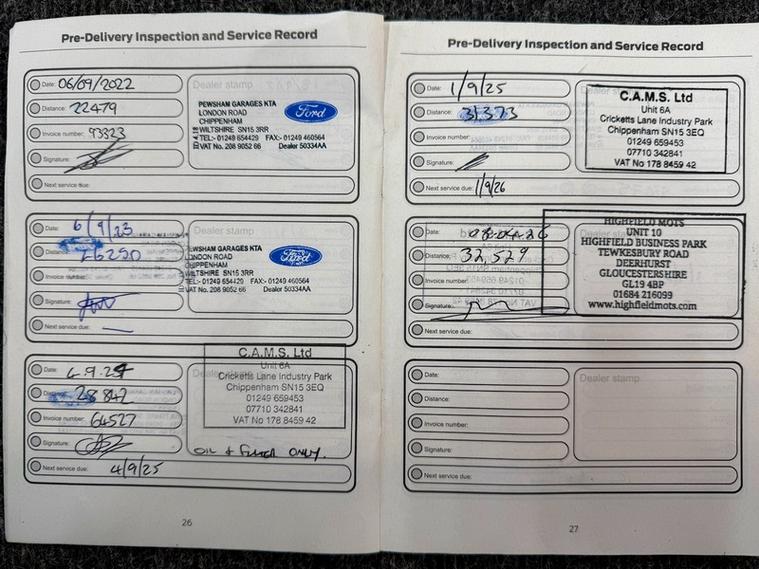 Pre-Delivery Inspection and Service Record
Date: 06/09/2022
Distance: 22479
Invoice number: 93323
Signature:
Next service due:
Dealer stamp
PEWSHAM GARAGES KTA
LONDON ROAD
CHIPPENHAM
WILTSHIRE SN15 3RR
TEL:- 01249 654429 FAX:- 01249 460564
VAT No. 208 9052 66 Dealer 50334AA
Ford
Date: 6/9/23
Distance: 26250
Invoice number:
Signature:
Next service due: —
Dealer stamp
PEWSHAM GARAGES KTA
LONDON ROAD
CHIPPENHAM
WILTSHIRE SN15 3RR
TEL:- 01249 654429 FAX:- 01249 460564
VAT No. 208 9052 66 Dealer 50334AA
Ford
Date: 4.9.24
Distance: 28842
Invoice number: 64527
Signature:
Next service due: 4/9/25
Dealer stamp
C.A.M.S. Ltd
Unit 6A
Cricketts Lane Industry Park
Chippenham SN15 3EQ
01249 659453
07710 342841
VAT No 178 8459 42
OIL & FILTER ONLY.
26
Pre-Delivery Inspection and Service Record
Date: 1/9/25
Distance: 31,373
Invoice number:
Signature:
Next service due: 1/9/26
C.A.M.S. Ltd
Unit 6A
Cricketts Lane Industry Park
Chippenham SN15 3EQ
01249 659453
07710 342841
VAT No 178 8459 42
Date:
Distance: 32,529
Invoice number:
Signature:
Next service due:
HIGHFIELD MOTS
UNIT 10
HIGHFIELD BUSINESS PARK
TEWKESBURY ROAD
DEERHURST
GLOUCESTERSHIRE
GL19 4BP
01684 216099
www.highfieldmots.com
Date:
Distance:
Invoice number:
Signature:
Next service due:
Dealer stamp
27